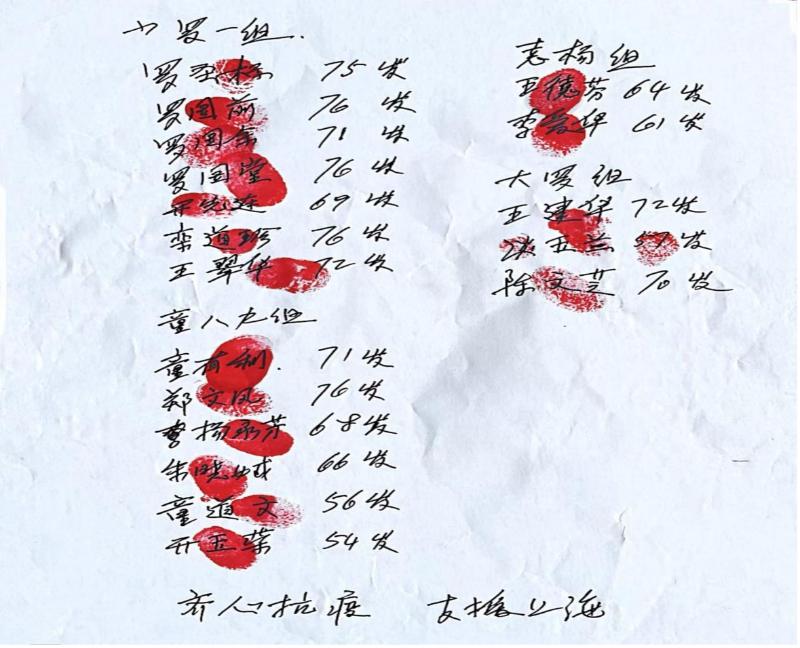 小罗一组.
罗圣杨 75岁
罗国前 76岁
罗国 71岁
罗国堂 76岁
开先连 69岁
栾道珍 76岁
王翠华 72岁
童八九组
童有利. 71岁
郑文凤 76岁
杨承芳 68岁
朱晓 66岁
童道文 56岁
开玉荣 54岁
袁杨组
王德芳 64岁
李华 61岁
大罗组
王建华 72岁
玉兰 57岁
陈文芝 70岁
齐心抗疫 支援上海